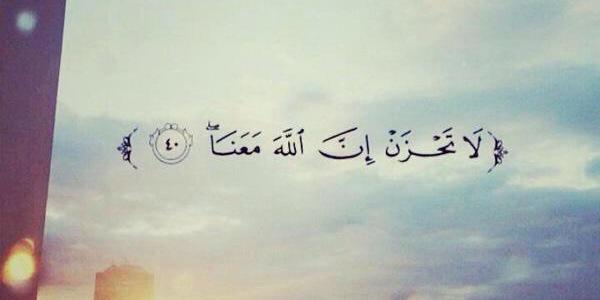 ﴿لَا تَحْزَنْ إِنَّ ٱللَّهَ مَعَنَاۖ ٤٠﴾